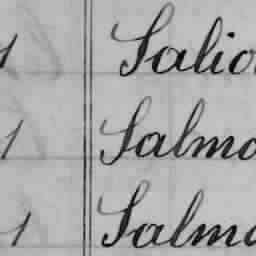 1 Salio
1 Salmo
1 Salmo